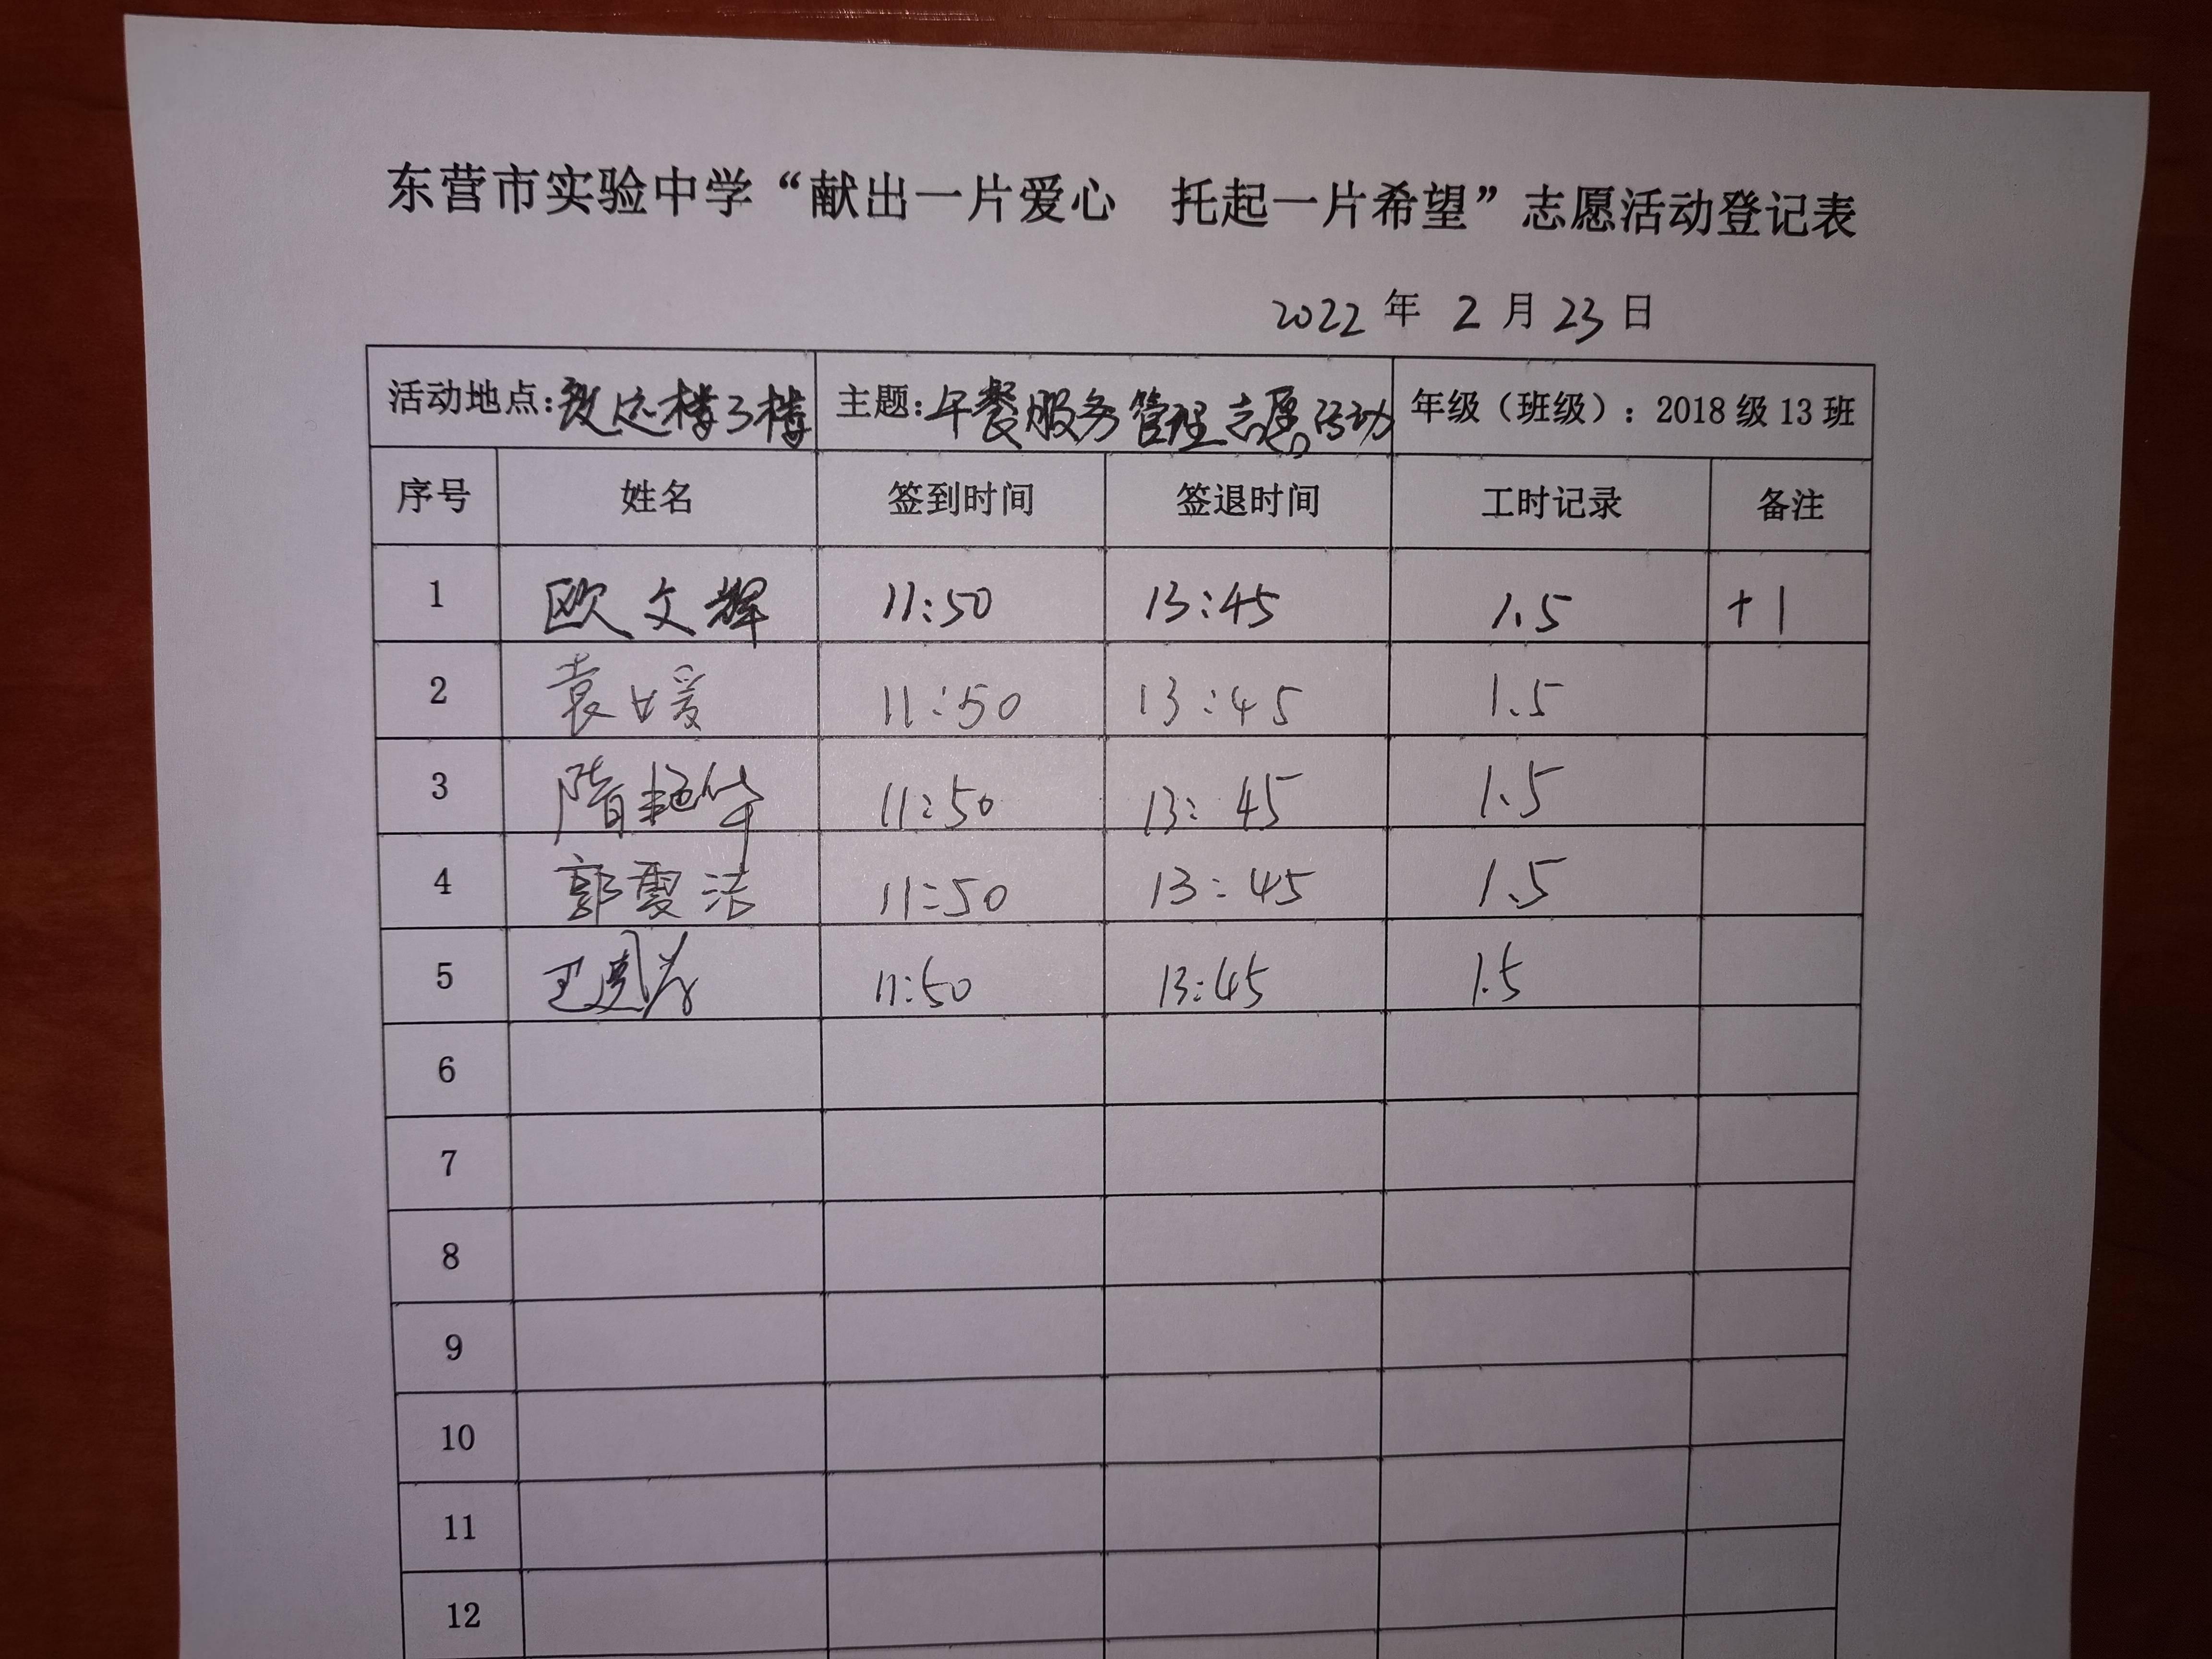 东营市实验中学“献出一片爱心 托起一片希望”志愿活动登记表
2022 年 2 月 23 日
活动地点:致远楼3楼 主题:午餐服务管理志愿活动 年级（班级）：2018级13班
序号 姓名 签到时间 签退时间 工时记录 备注
1 欧文辉 11:50 13:45 1.5 +1
2 袁媛 11:50 13:45 1.5
3 隋艳华 11:50 13:45 1.5
4 郭雯洁 11:50 13:45 1.5
5 11:50 13:45 1.5
6
7
8
9
10
11
12